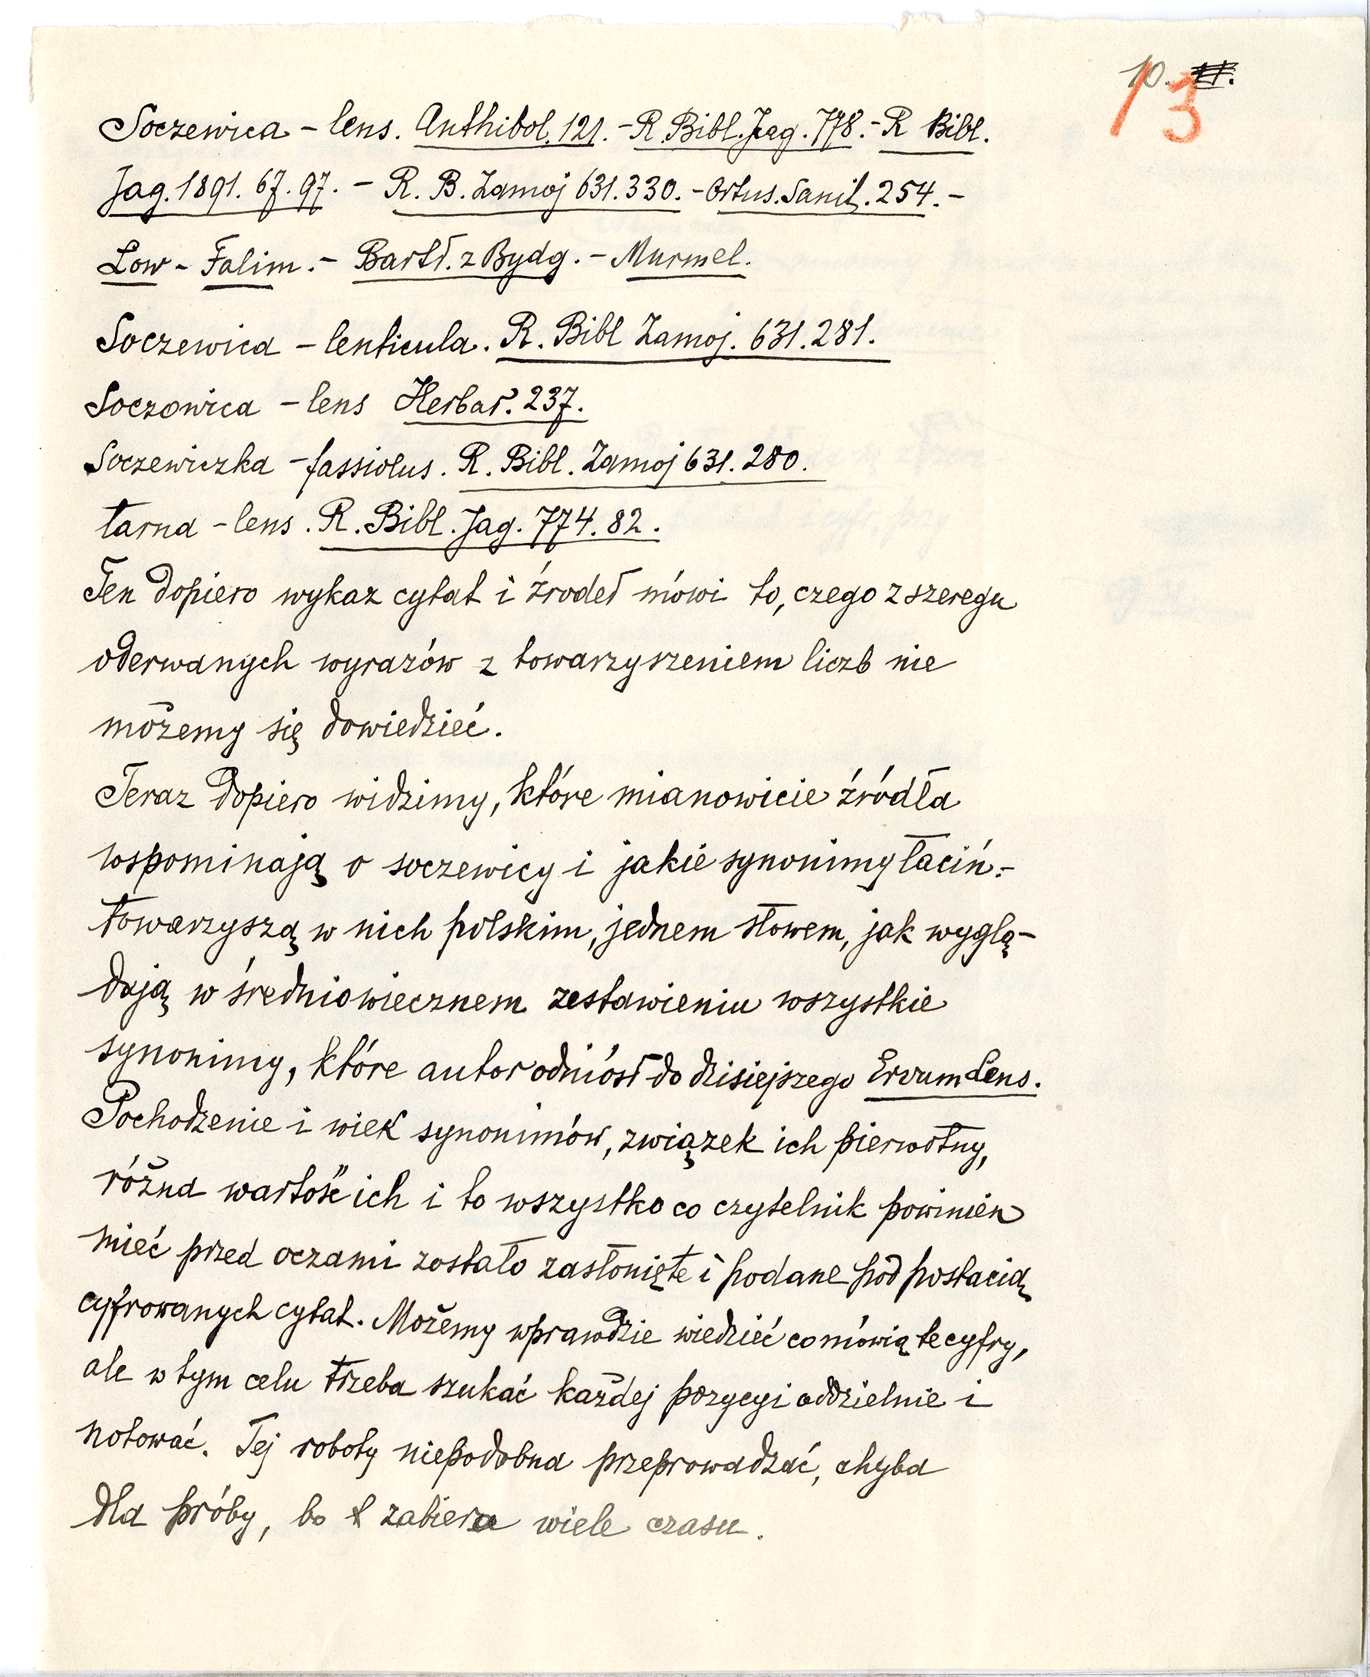 10. 11.
13
Soczewica – lens. Anthibol. 121. – R. Bibl. Jag. 778. – R Bibl.
Jag. 1891. 67. 97. – R. B. Zamoj 631. 330. – Ortus. Sanit. 254. –
Low – Falim. – Bartł. z Bydg. – Murmel.
Soczewica – lenticula. R. Bibl Zamoj. 631. 281.
Soczowica – lens Herbar. 237.
Soczewiczka – fassiolus. R. Bibl. Zamoj 631. 280.
tarna – lens. R. Bibl. Jag. 774. 82.
Ten dopiero wykaz cytat i źrodeł mówi to, czego z szeregu
oderwanych wyrazów z towarzyszeniem liczb nie
możemy się dowiedzieć.
Teraz dopiero widzimy, które mianowicie źródła
wspominają o soczewicy i jakie synonimy łaciń.-
towarzyszą w nich polskim, jednem słowem, jak wyglą-
dają w średniowiecznem zestawieniu wszystkie
synonimy, które autor odniósł do dzisiejszego Ervum Lens.
Pochodzenie i wiek synonimów, związek ich pierwotny,
różna wartość ich i to wszystko co czytelnik powinien
mieć przed oczami zostało zasłonięte i podane pod postacią
cyfrowanych cytat. Możemy wprawdzie wiedzieć co mówią te cyfry,
ale w tym celu trzeba szukać każdej pozycyi oddzielnie i
notować. Tej roboty niepodobna przeprowadzać, chyba
dla próby, bo zabiera wiele czasu.